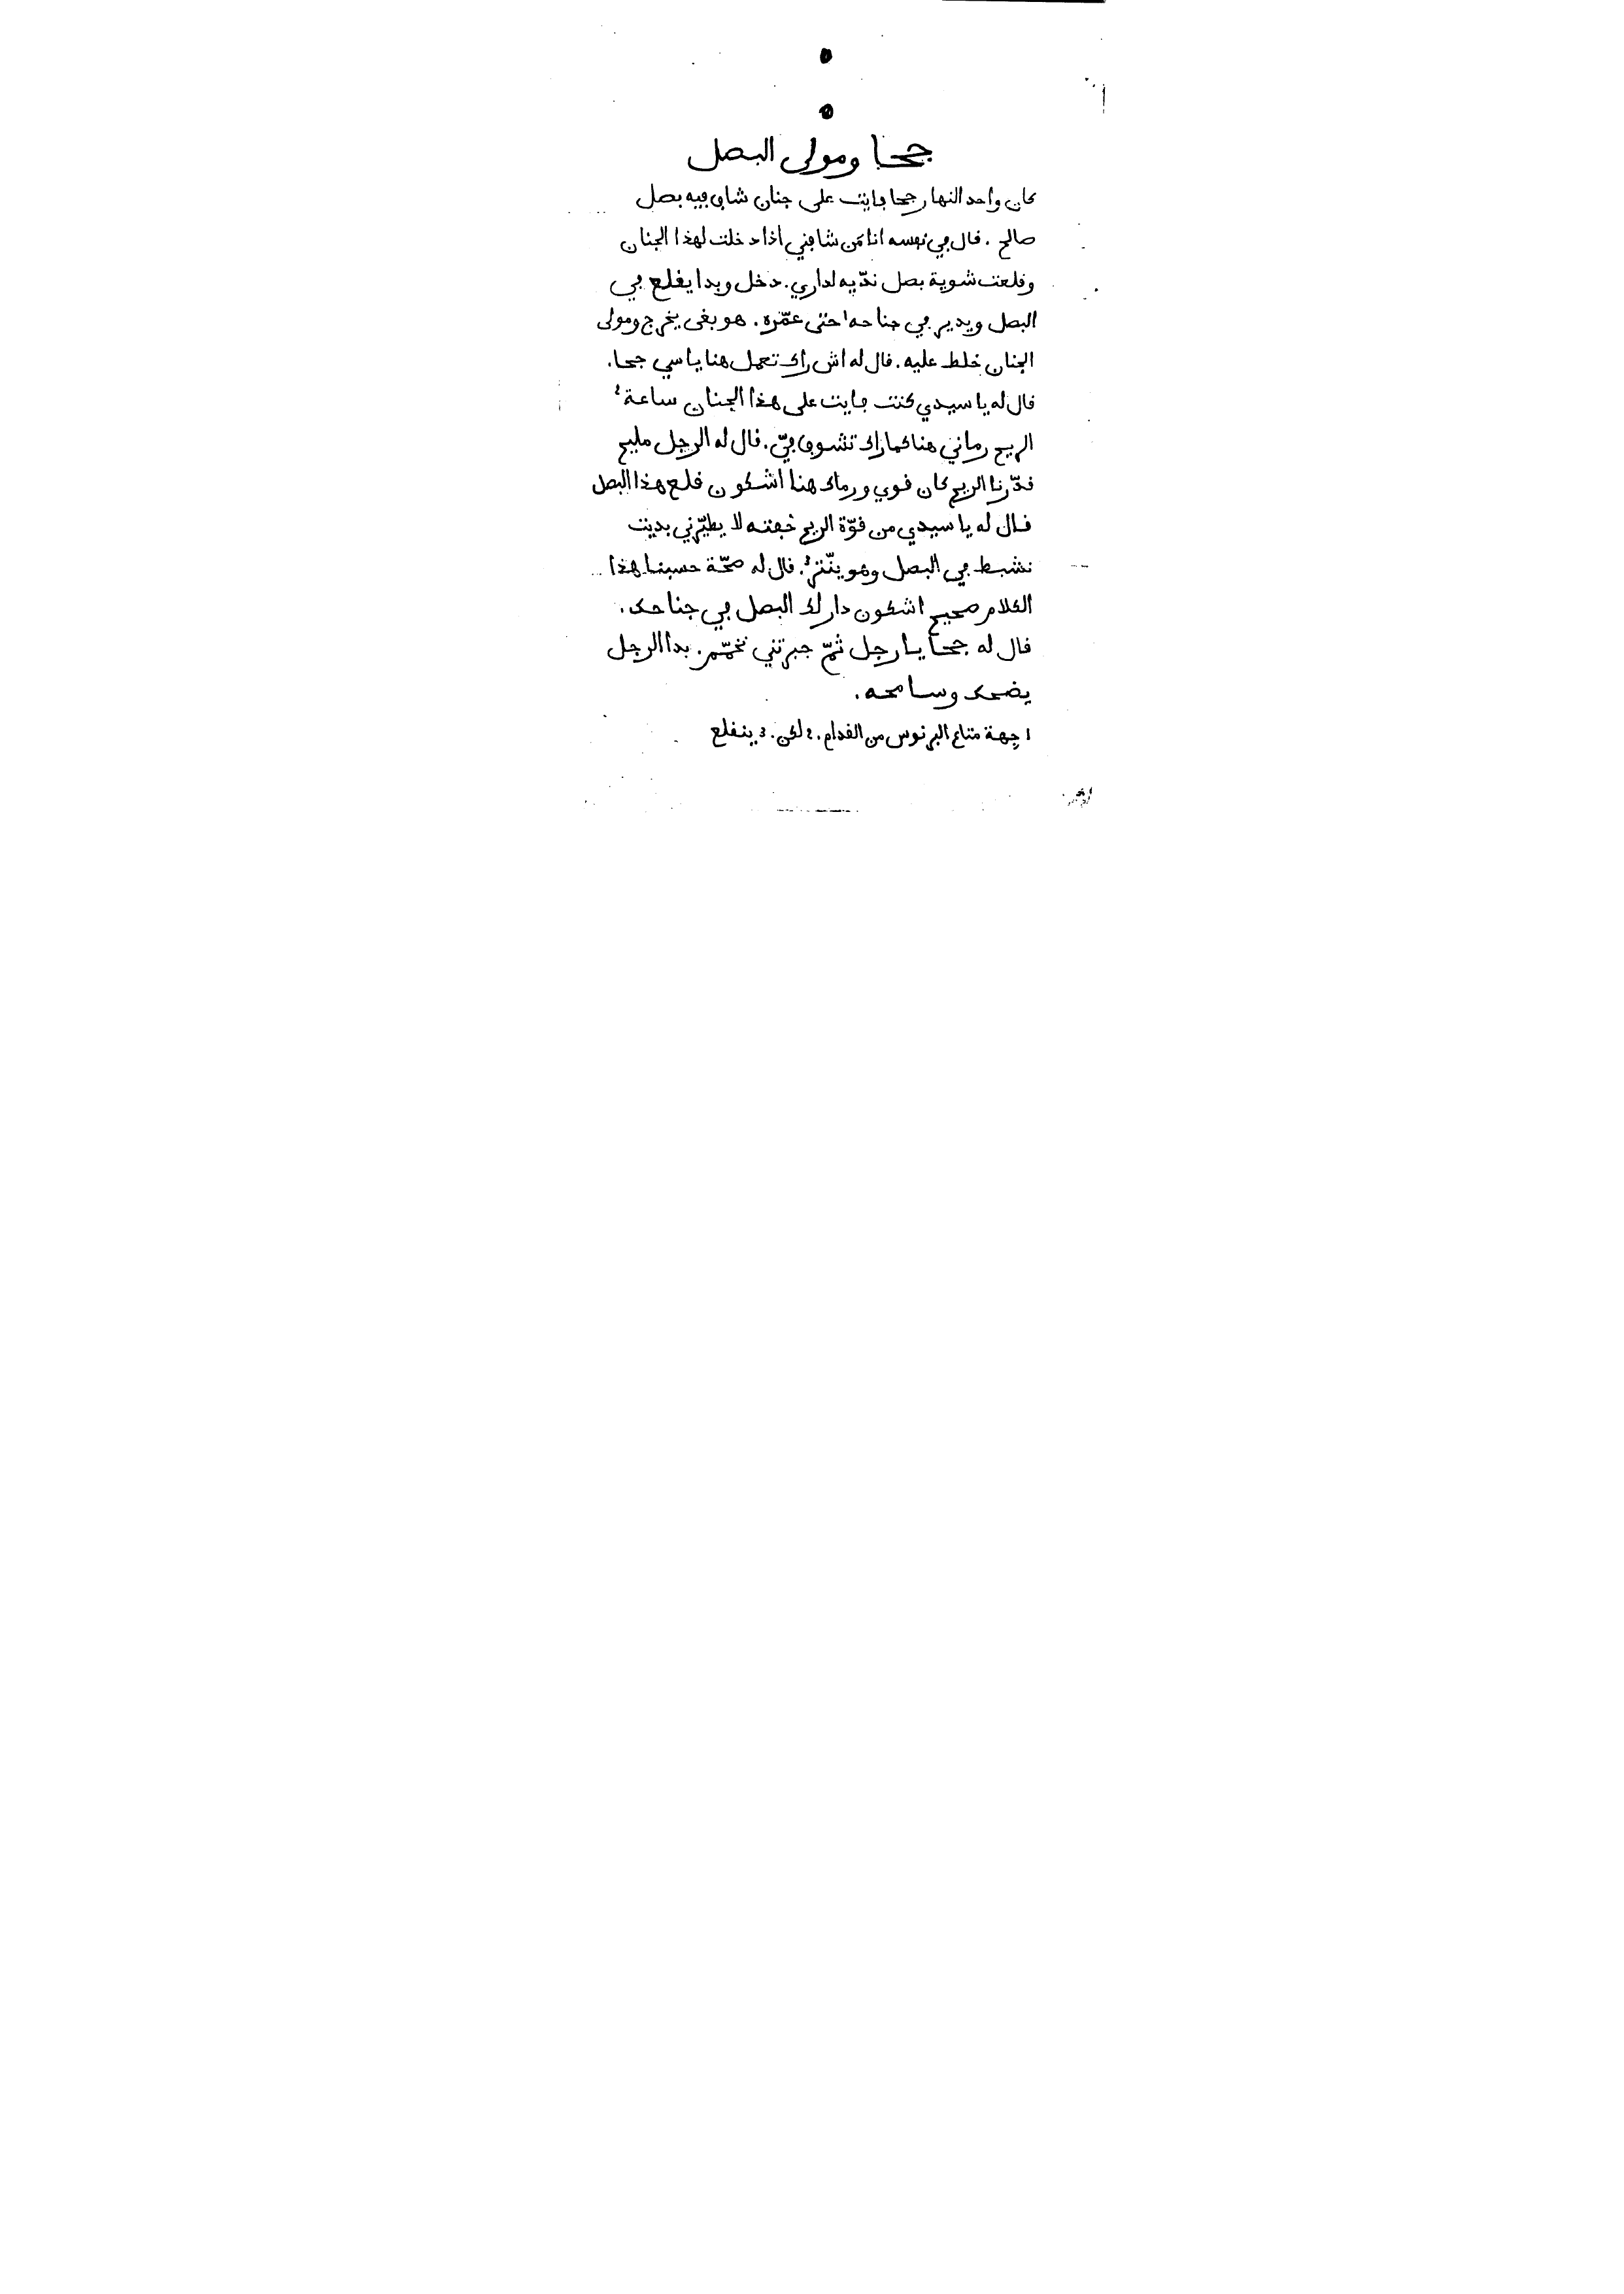 جحا ومولى البصل
كان واحد النهار جحا فايت على جنان شاف فيه بصل
صالح. قال في نفسه انا مَن شافني أذا دخلت لهذا الجنان
وقلعت شوية بصل ندّيه لداري. دخل وبدا يقلع في
البصل ويدير في جناحه¹ حتى عمّره. هو بغى يخرج ومولى
الجنان خلط عليه. قال له اش راك تعمل هنا يا سي جحا.
قال له يا سيدي كنت فايت على هذا الجنان ساعة²
الريح رماني هنا كما راك تشوف فيّ. قال له الرجل مليح
قدّرنا الريح كان قوي ورماك هنا اشكون قلع هذا البصل
قال له يا سيدي من قوّة الريح خفته لا يطيّرني بديت
نشبط في البصل وهو ينّتر³. قال له صحّة حسبنا هذا
الكلام صحيح اشكون دار لك البصل في جناحك.
قال له جحا يا رجل ثمّ جبرتني نخمّم. بدا الرجل
يضحك وسامحه.
1 جهة متاع البرنوس من القدام. 2 لكن. 3 ينقلع